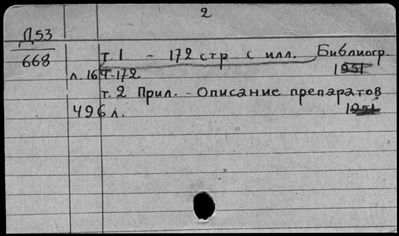 2
Д53
668
т. 1 - 172 стр с илл. Библиогр.
л. 16+172 1951
т. 2 Прил. - Описание препаратов
496 л. 1951